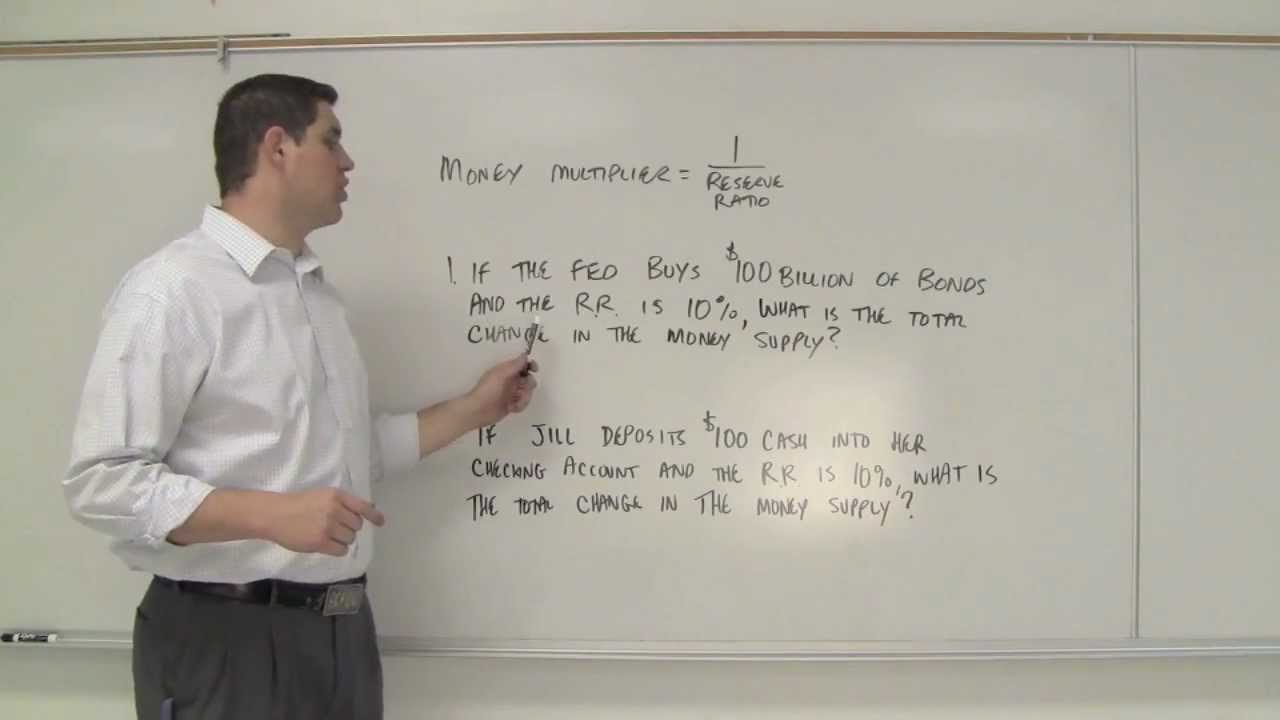 MONEY MULTIPLIER = 1
RESERVE
RATIO
1. IF THE FED BUYS $100 BILLION OF BONDS
AND THE R.R. IS 10%, WHAT IS THE TOTAL
CHANGE IN THE MONEY SUPPLY?
IF JILL DEPOSITS $100 CASH INTO HER
CHECKING ACCOUNT AND THE R.R. IS 10%, WHAT IS
THE TOTAL CHANGE IN THE MONEY SUPPLY?